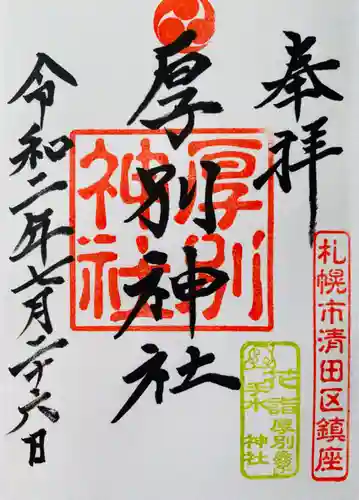 奉拝
札幌市清田区鎮座
厚別神社
厚別
神社
花詣
厚別
神社
令和二年七月二十六日